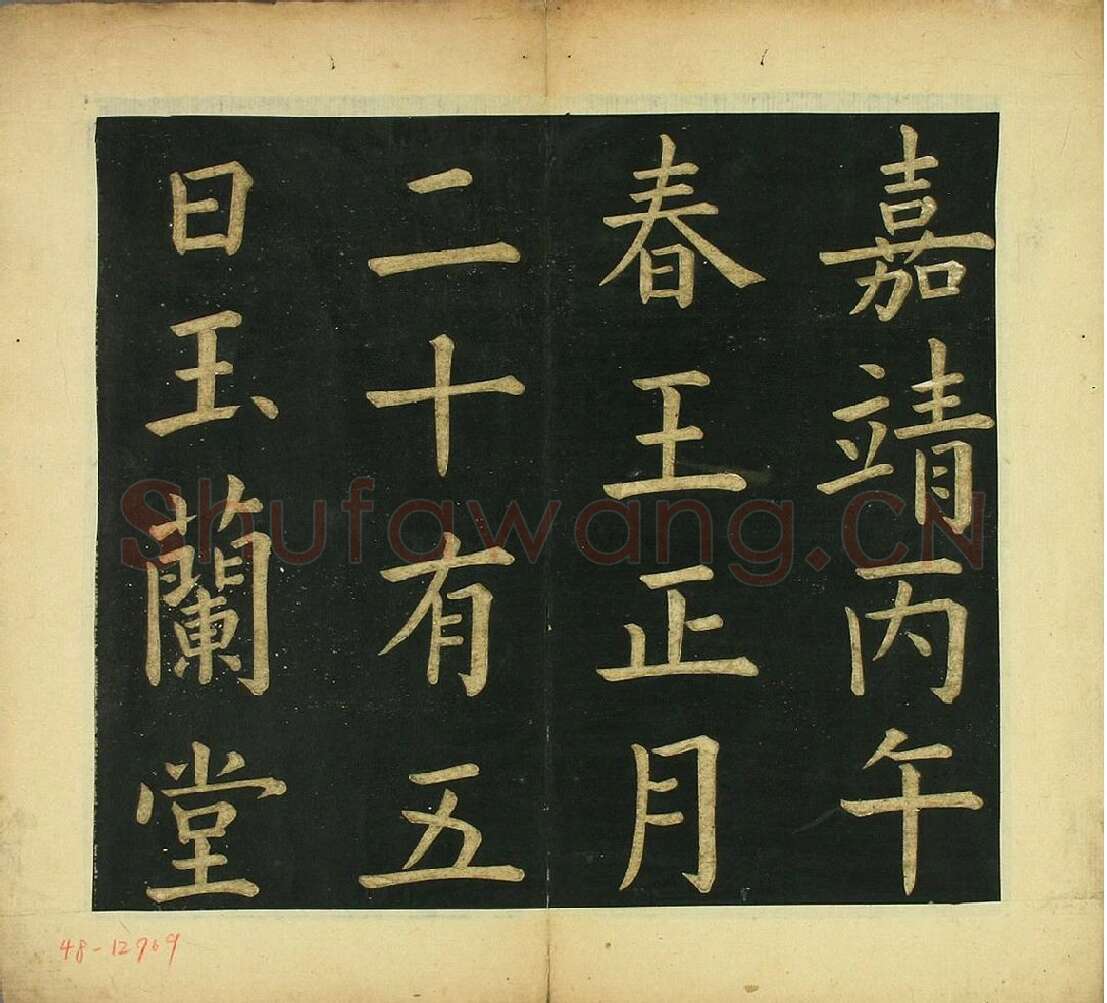 嘉靖丙午
春王正月
二十有五
日玉蘭堂
Shufawang.CN
48-12969